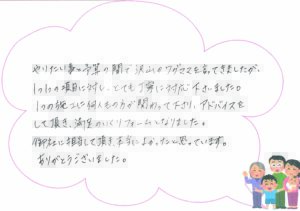 やりたい事と予算の関で沢山のワガママを言ってきましたが、
1つ1つの項目に対し、とても丁寧に対応下さいました。
1つの施工に何人もの方が関わって下さり、アドバイスを
して頂き、満足のいくリフォームとなりました。
御社に相談して頂き本当によかったと思っています。
ありがとうございました。